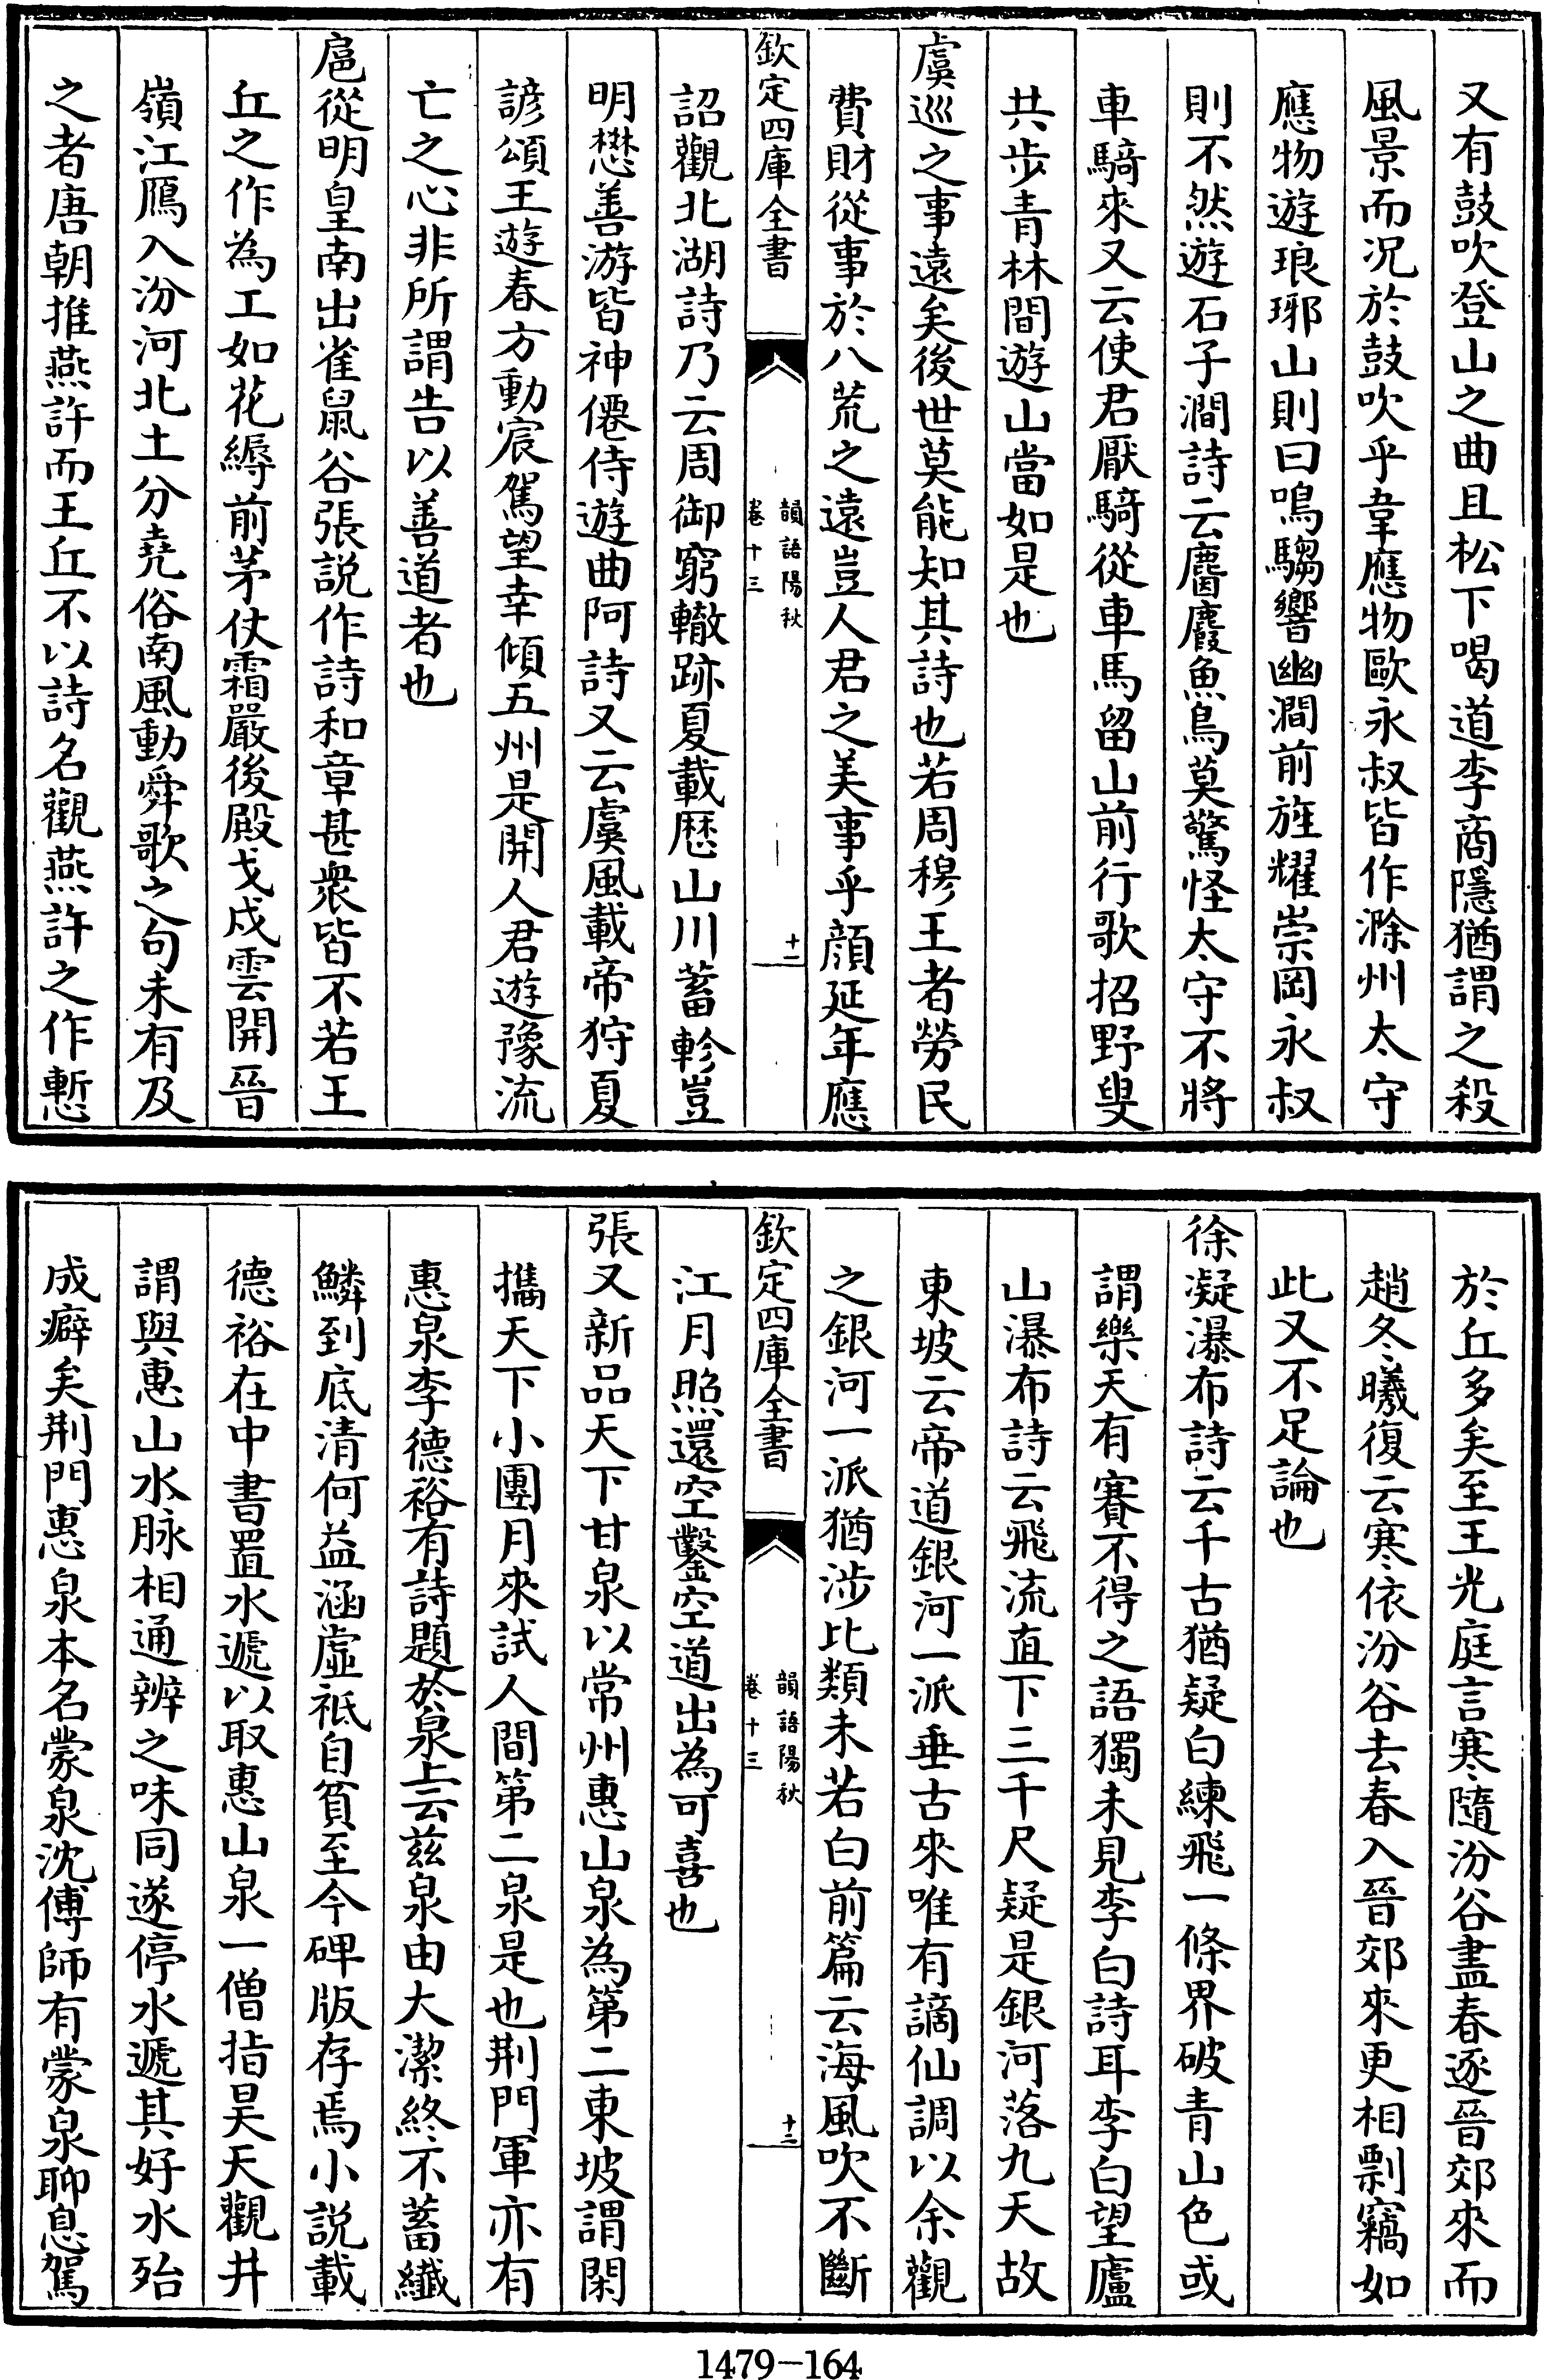 又有鼓吹登山之曲且松下喝道李商隱猶謂之殺
風景而况於鼓吹乎韋應物歐永叔皆作滁州太守
應物遊琅琊山則曰鳴騶響幽澗前旌耀崇岡永叔
則不然遊石子澗詩云麏麚魚鳥莫驚怪太守不將
車騎來又云使君厭騎從車馬留山前行歌招野叟
共步青林間遊山當如是也
虞巡之事遠矣後世莫能知其詩也若周穆王者勞民
費財從事於八荒之遠豈人君之美事乎顔延年應
欽定四庫全書
韻語陽秋
卷十三
十二
詔觀北湖詩乃云周御窮轍跡夏載歷山川蓄軫豈
明懋善游皆神僊侍遊曲阿詩又云虞風載帝狩夏
諺頌王遊春方動宸駕望幸傾五州是開人君遊豫流
亡之心非所謂告以善道者也
扈從明皇南出雀鼠谷張説作詩和章甚衆皆不若王
丘之作為工如花縟前茅仗霜嚴後殿戈戍雲開晉
嶺江鴈入汾河北土分堯俗南風動舜歌之句未有及
之者唐朝推燕許而王丘不以詩名觀燕許之作慙
於丘多矣至王光庭言寒隨汾谷盡春逐晉郊來而
趙冬曦復云寒依汾谷去春入晉郊來更相剽竊如
此又不足論也
徐凝瀑布詩云千古猶疑白練飛一條界破青山色或
謂樂天有賽不得之語獨未見李白詩耳李白望廬
山瀑布詩云飛流直下三千尺疑是銀河落九天故
東坡云帝道銀河一派垂古來唯有謫仙調以余觀
之銀河一派猶涉比類未若白前篇云海風吹不斷
欽定四庫全書
韻語陽秋
卷十三
十三
江月照還空鑿空道出為可喜也
張又新品天下甘泉以常州惠山泉為第二東坡謂閑
攜天下小團月來試人間第二泉是也荆門軍亦有
惠泉李德裕有詩題於泉上云兹泉由大潔終不蓄纖
鱗到底清何益涵虛祗自貧至今碑版存焉小説載
德裕在中書置水遞以取惠山泉一僧指昊天觀井
謂與惠山水脉相通辨之味同遂停水遞其好水殆
成癖矣荆門惠泉本名蒙泉沈傅師有蒙泉聊息駕
1479-164